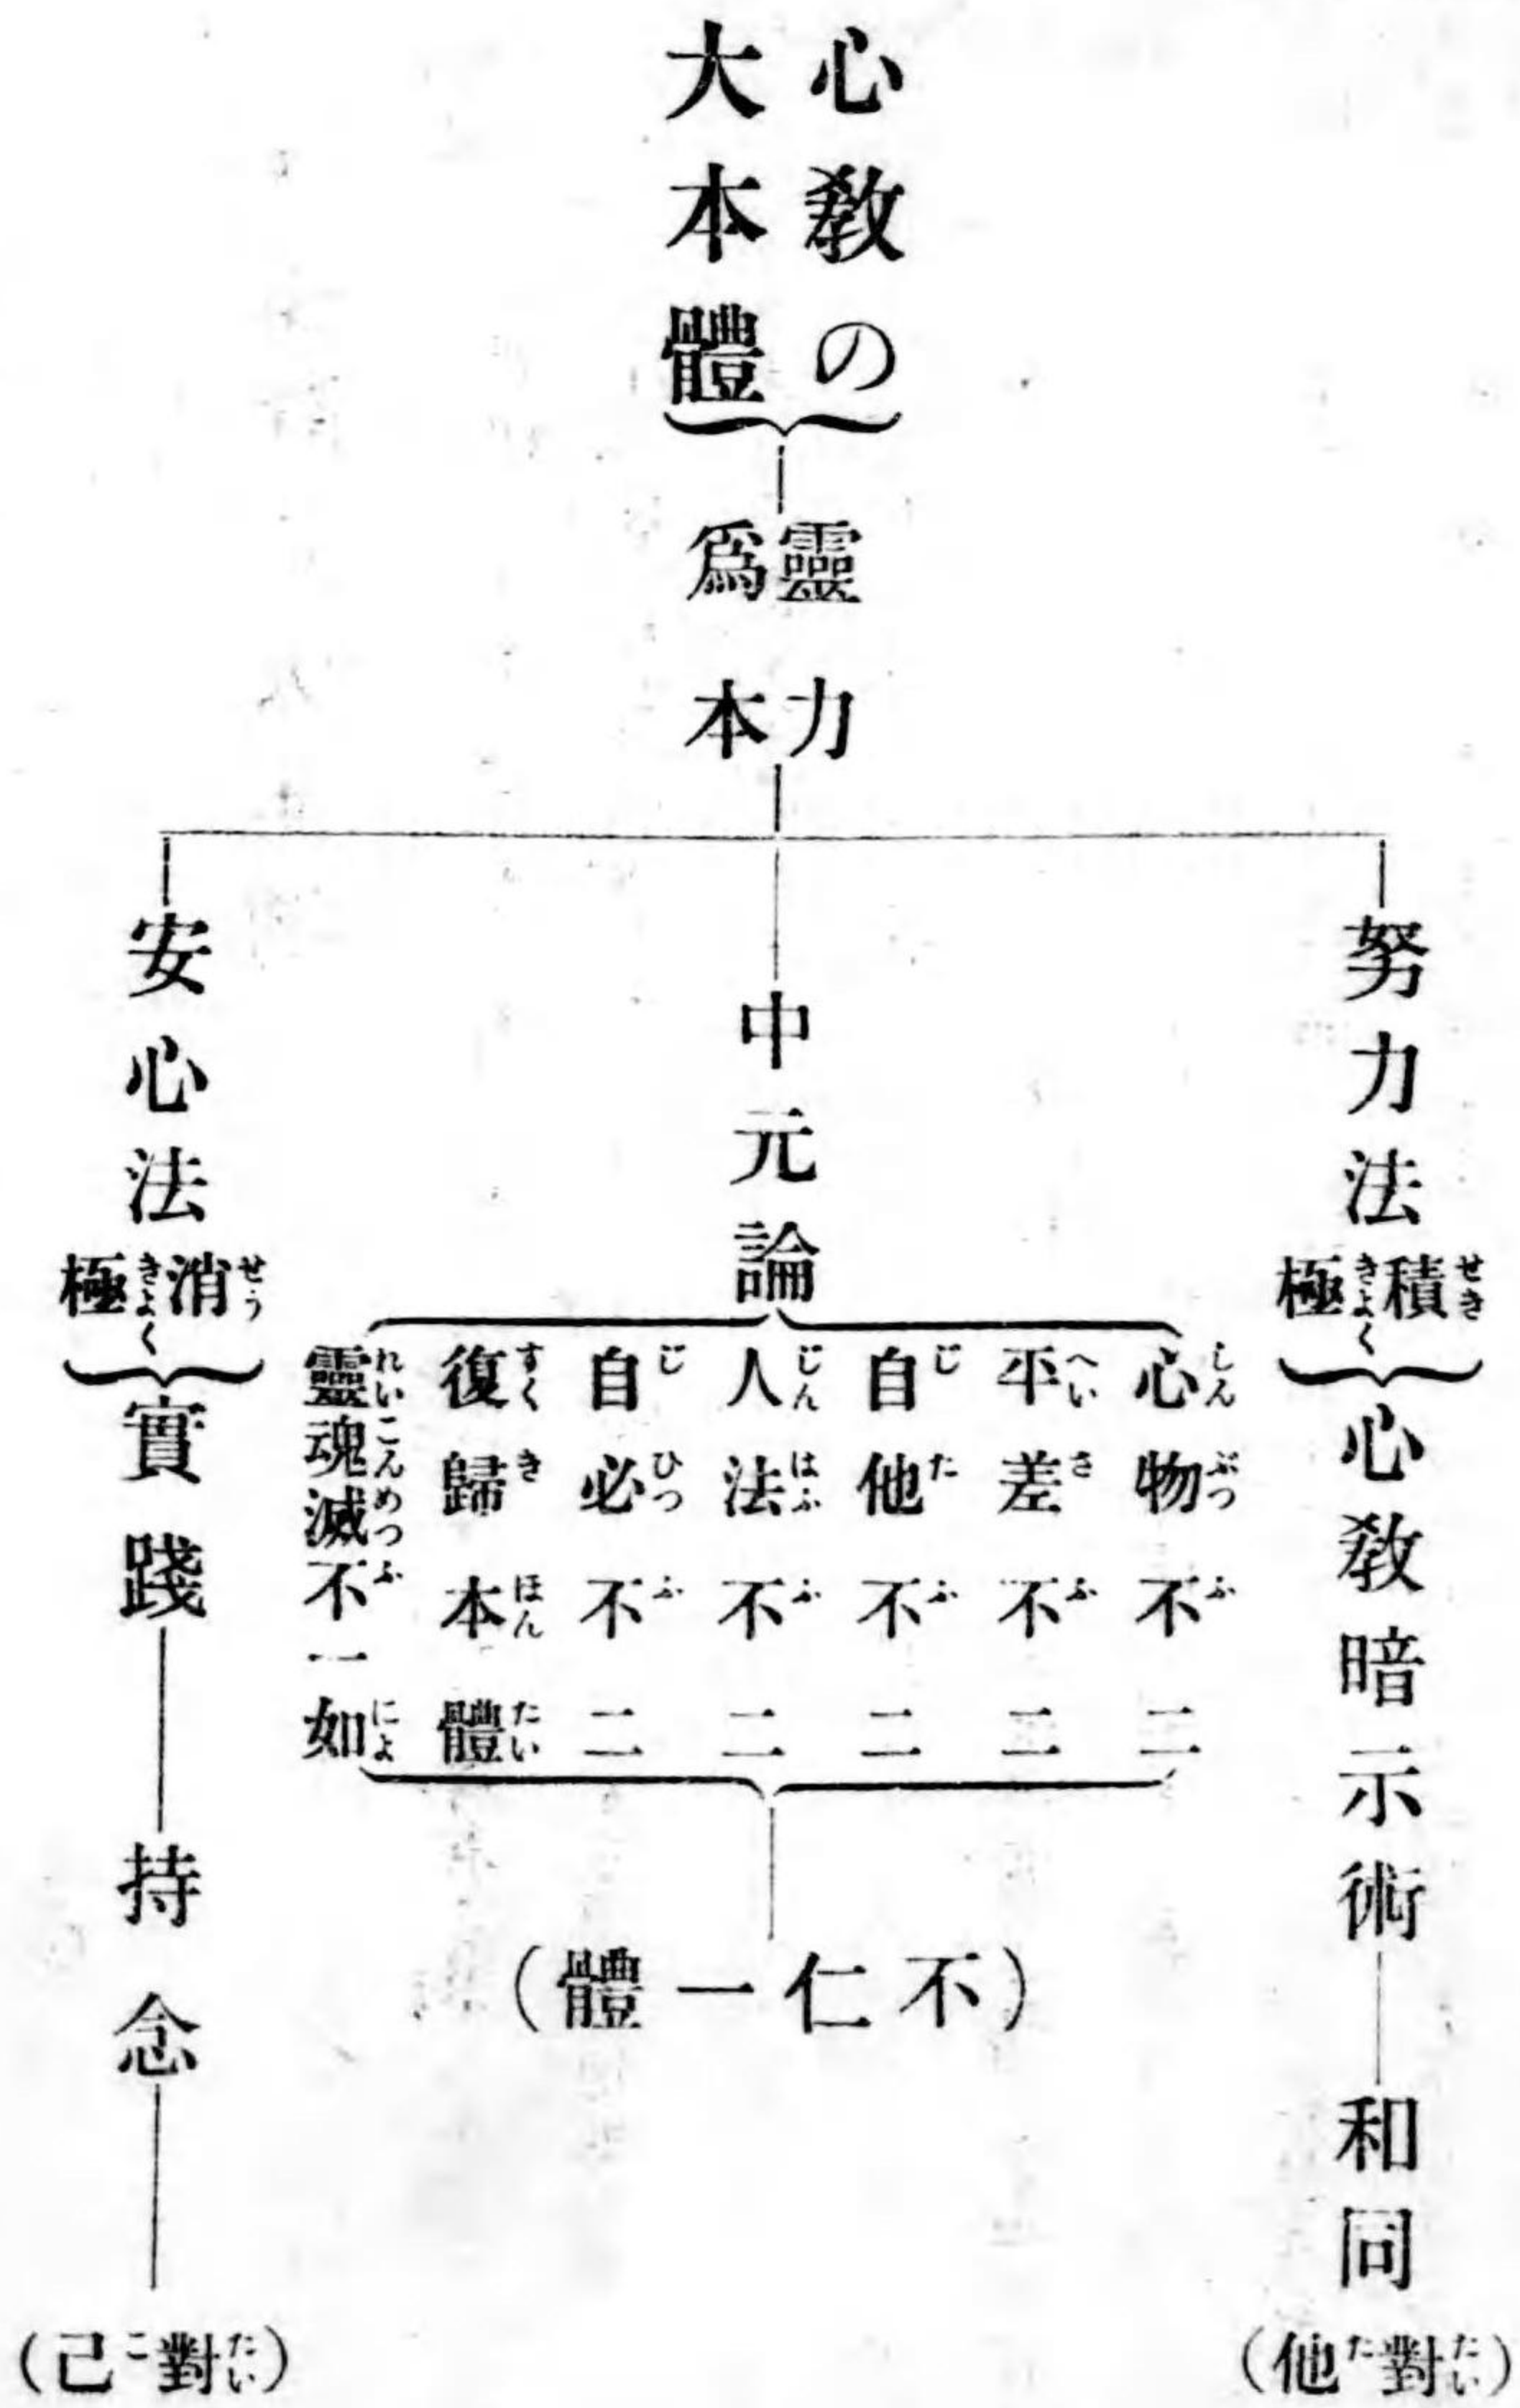 心教の
大本體
靈力
爲本
努力法
積極
せききよく
心教暗示術
和同
(對他)
たいた
中元論
心物不二
しんぶつふ
平差不二
へいさふ
自他不二
じたふ
人法不二
じんはふふ
自必不二
じひつふ
復歸本體
すくきほんたい
靈魂滅不一如
れいこんめつふによ
(不仁一體)
安心法
消極
せうきよく
實踐
持念
(對己)
たいこ